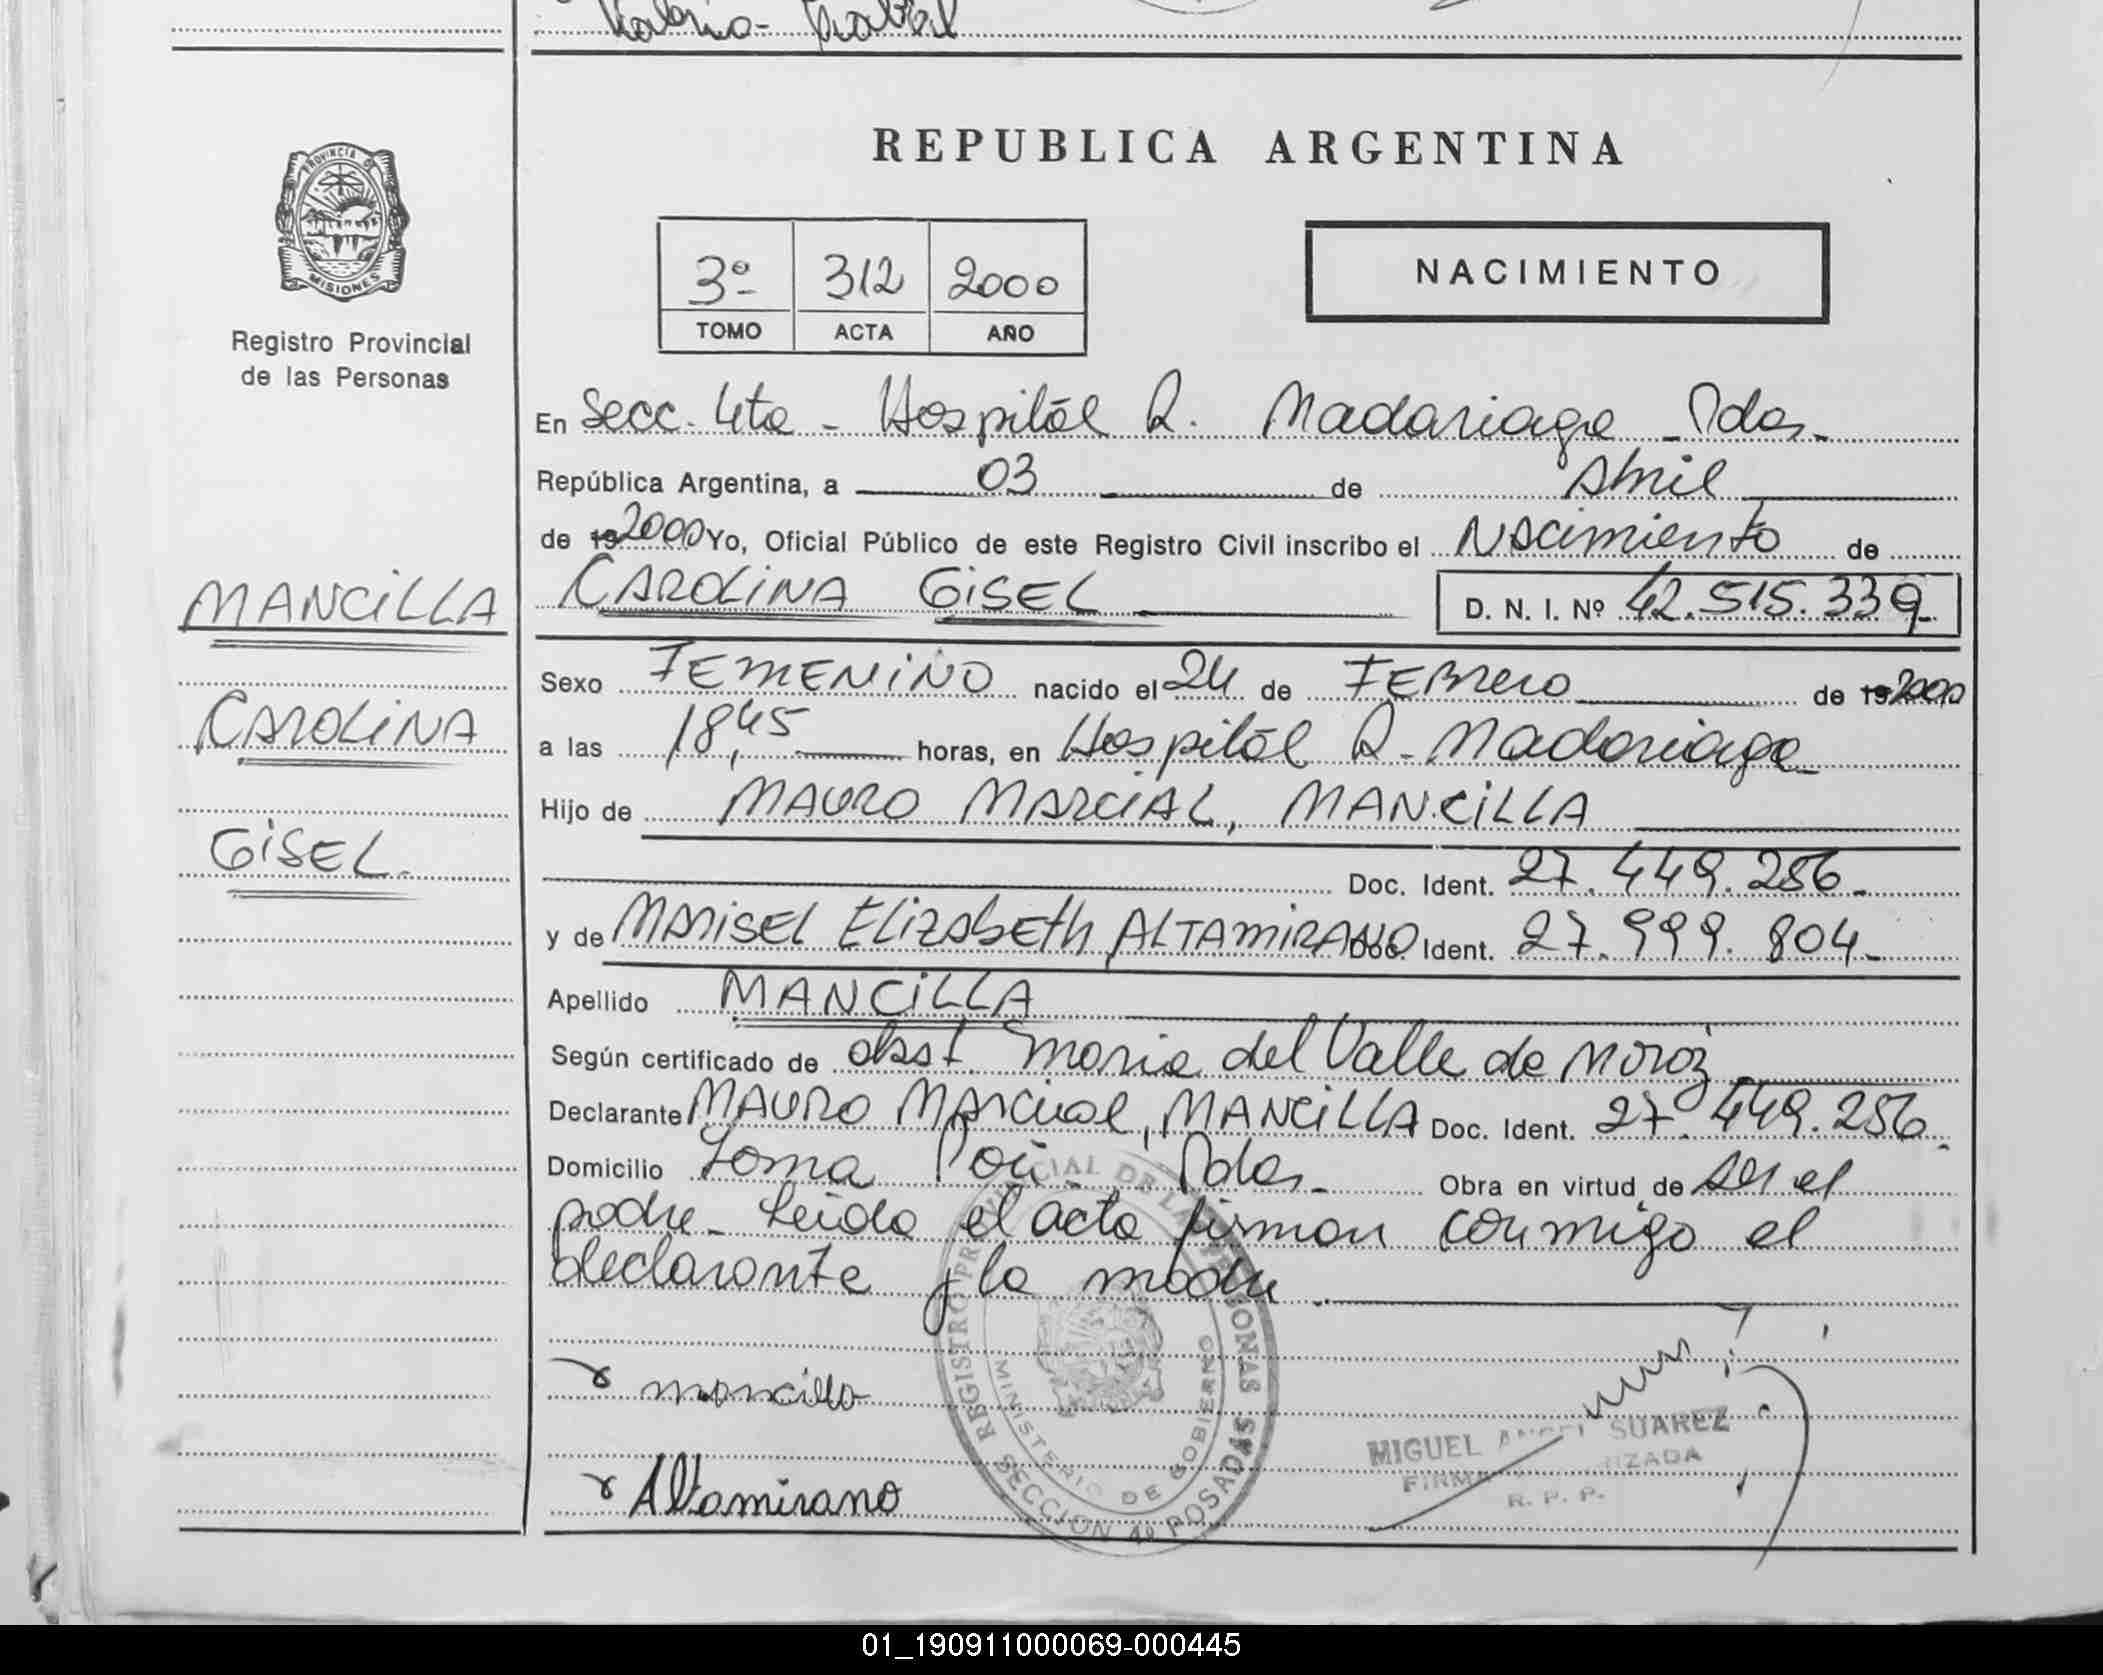 REPUBLICA ARGENTINA
PROVINCIA DE
MISIONES
Registro Provincial
de las Personas
3º 312 2000
TOMO ACTA AÑO
NACIMIENTO
En Secc. 4ta - Hospital R. Madariaga - Pdas.
República Argentina, a 03 de Abril
de 19 2000 Yo, Oficial Público de este Registro Civil inscribo el Nacimiento de
CAROLINA GISEL D. N. I. Nº 42.515.339
MANCILLA
CAROLINA
GISEL.
Sexo FEMENINO nacido el 24 de FEBrero de 19 2000
a las 18,45 horas, en Hospital R. Madariaga
Hijo de MAURO MARCIAL, MANCILLA
Doc. Ident. 27.449.256.
y de MARISEL ELIZABETH, ALTAMIRANO Doc. Ident. 27.999.804.
Apellido MANCILLA
Según certificado de obst. Maria del Valle de
Declarante MAURO MARCIAL, MANCILLA Doc. Ident. 27.449.256.
Domicilio Loma Poi - Pdas. Obra en virtud de ser el
padre - Leida el acta firman conmigo el
declarante y la madre
mancilla
Altamirano
REGISTRO PROVINCIAL DE LAS PERSONAS
MINISTERIO DE GOBIERNO
SECCION 4º POSADAS
MIGUEL ANGEL SUAREZ
R. P. P.
01_190911000069-000445